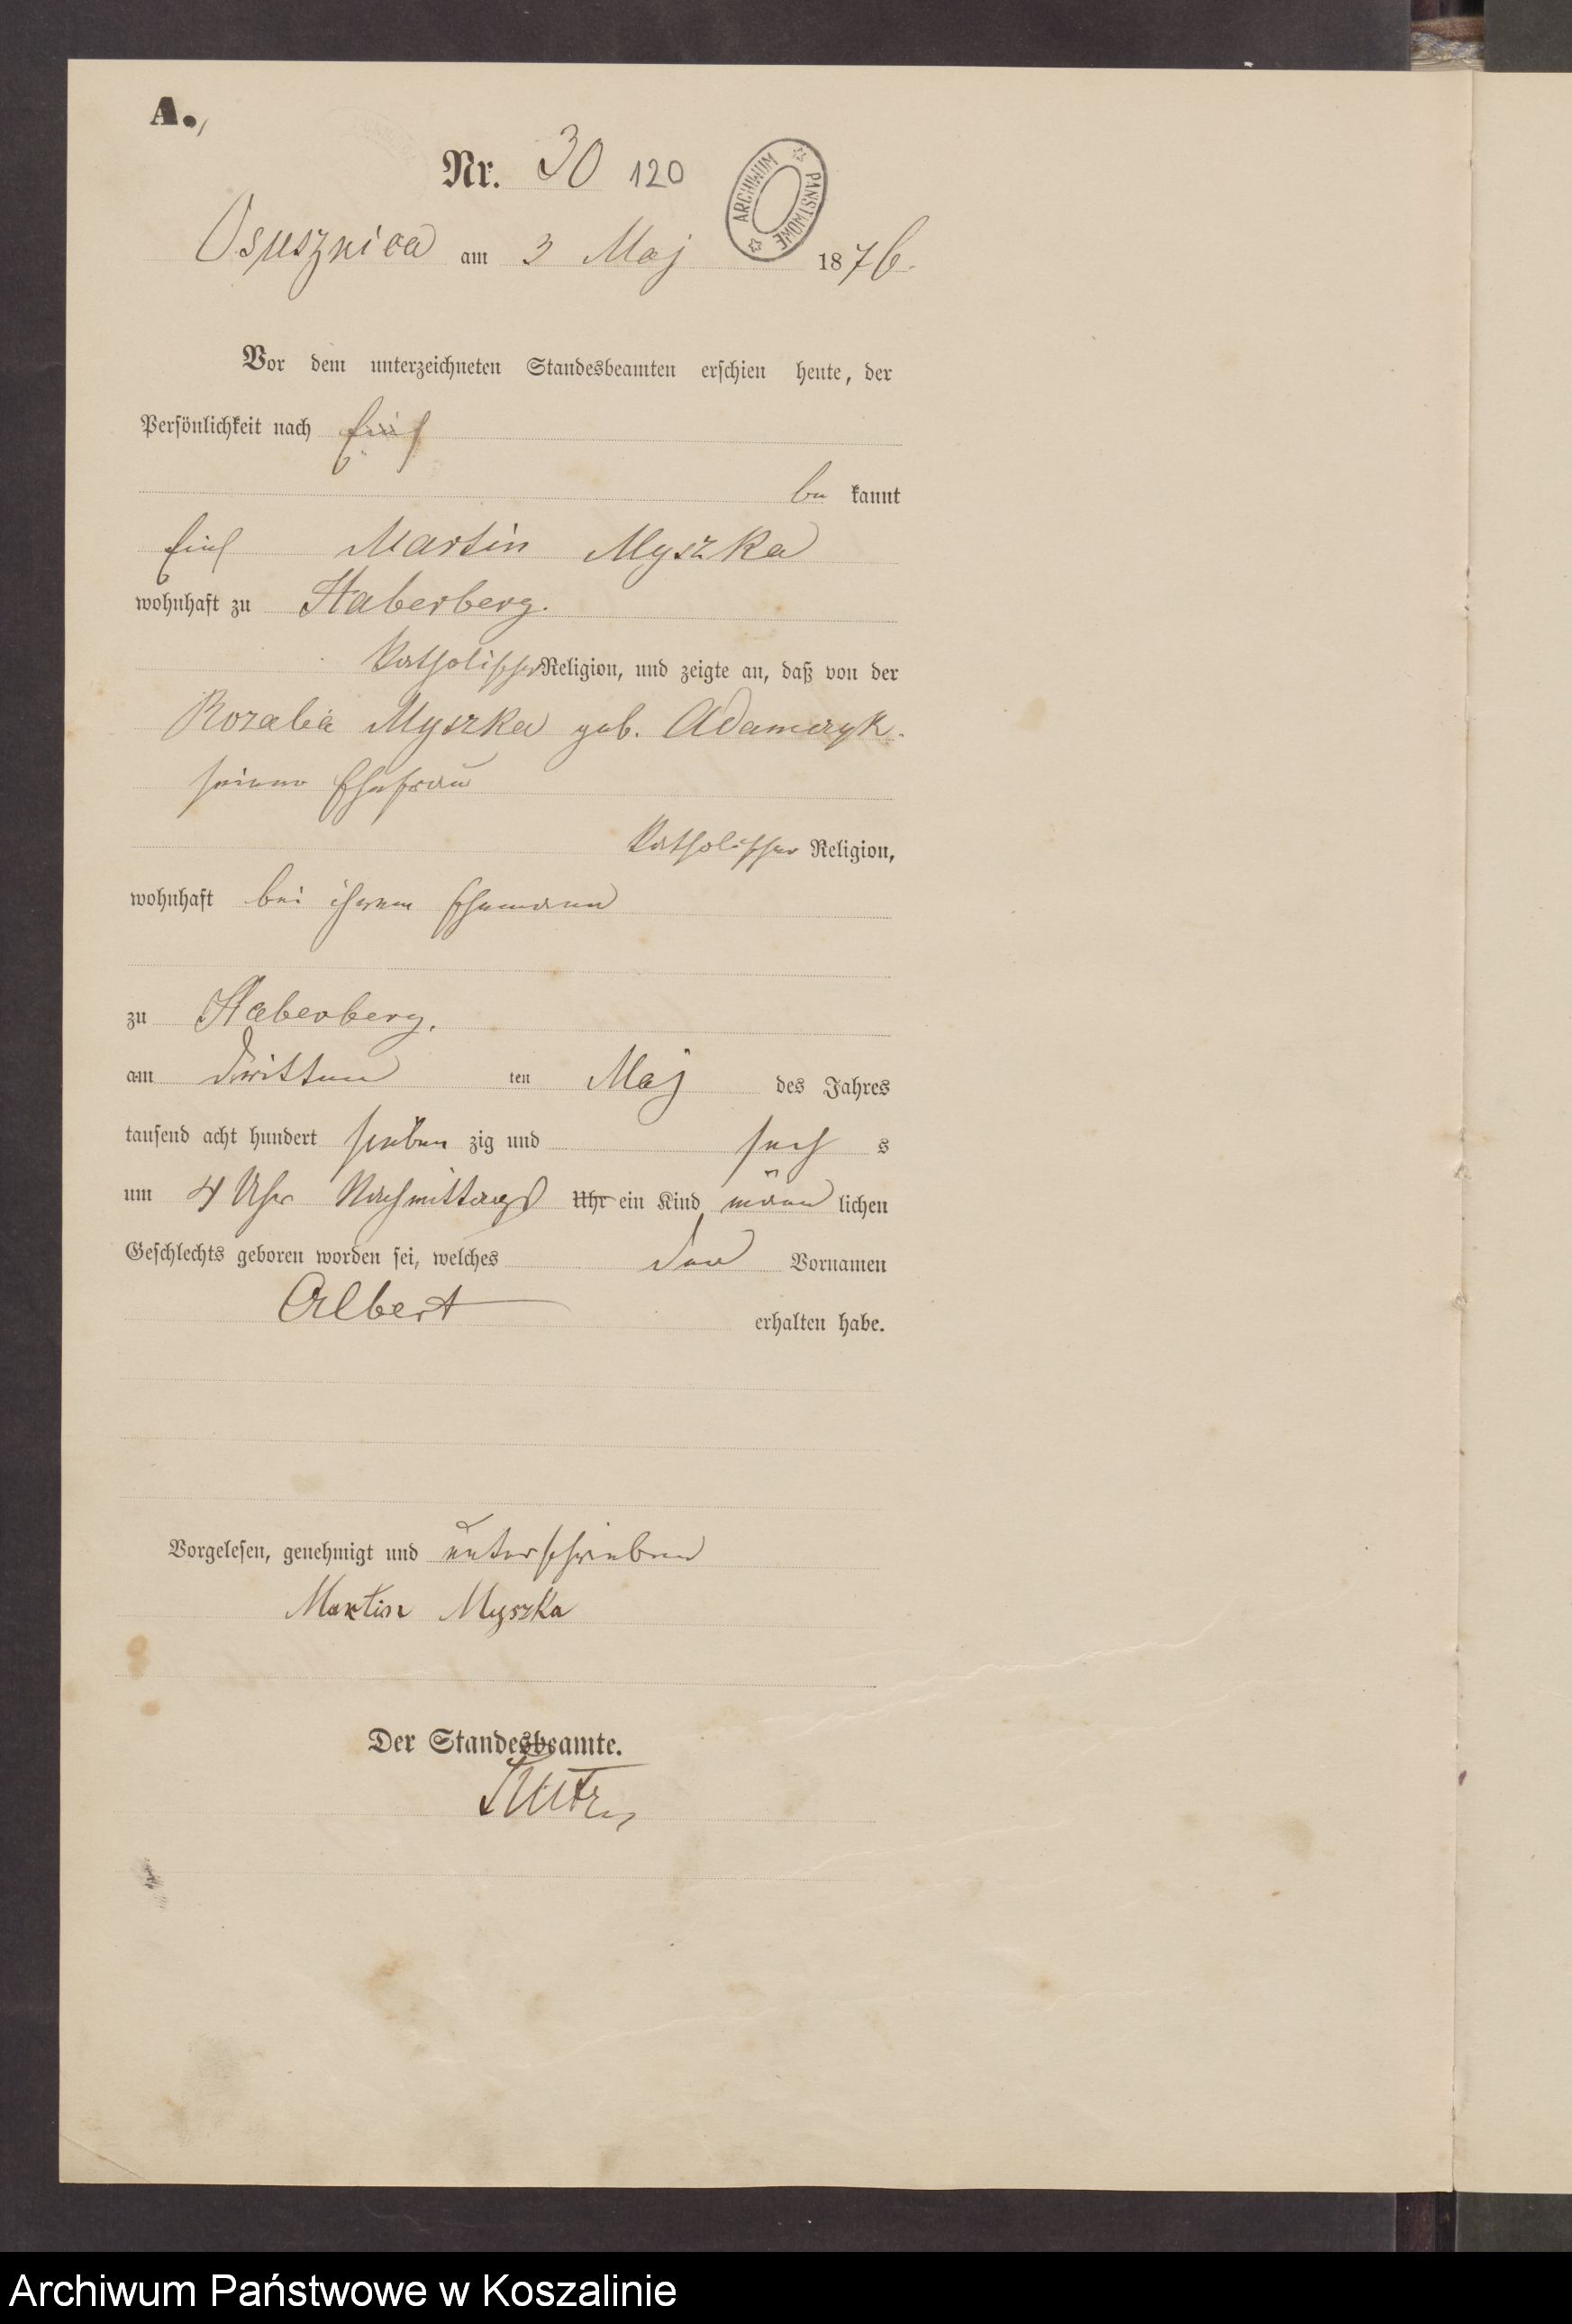 A.,
Nr. 30 120
ARCHIWUM PAŃSTWOWE
Osusznica am 3 Maj 1876.
Vor dem unterzeichneten Standesbeamten erschien heute, der
Persönlichkeit nach
be kannt
Martin Myszka
wohnhaft zu Haberberg.
katholischer Religion, und zeigte an, daß von der
Rozalia Myszka geb. Adamczyk.
seiner Ehefrau
katholischer Religion,
wohnhaft bei ihrem Ehemann
zu Haberberg.
am dritten ten Maj des Jahres
tausend acht hundert sieben zig und sech s
um 4 Uhr Nachmittags Uhr ein Kind männ lichen
Geschlechts geboren worden sei, welches den Vornamen
Albert erhalten habe.
Vorgelesen, genehmigt und unterschrieben
Martin Myszka
Der Standesbeamte.
Archiwum Państwowe w Koszalinie